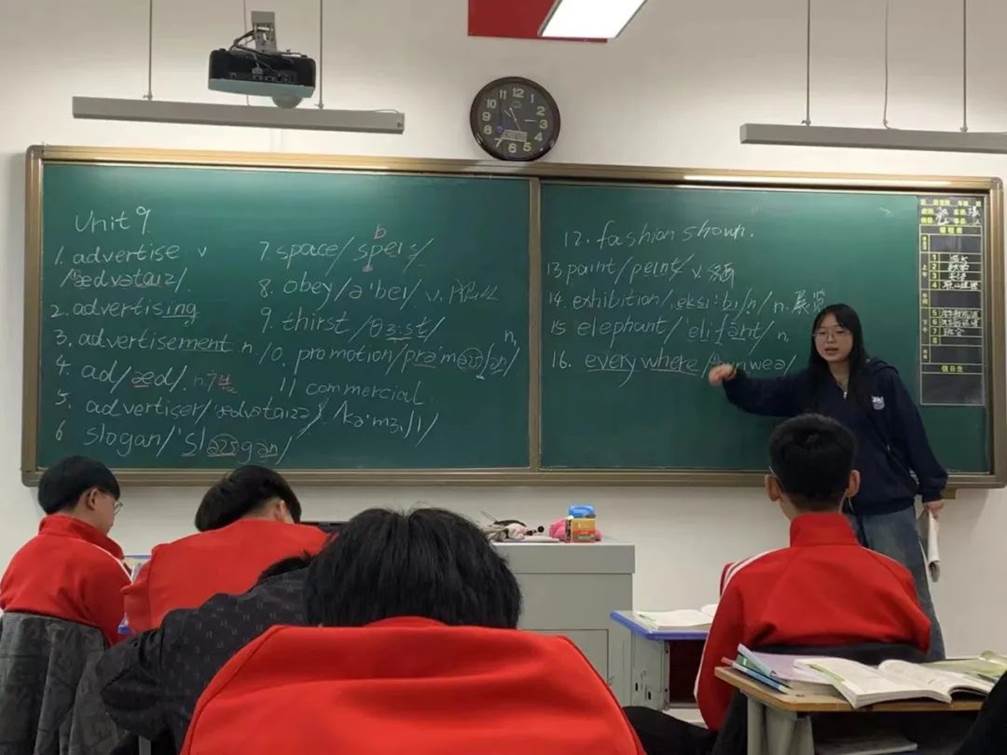 Unit 9
1. advertise v
/ædvətaiz/.
2. advertising
3. advertisement n
4 ad/æd/. n.
5. advertiser/'ædvətaizə/
6 slogan/'sləʊgən/
7. space/speis/
b
8. obey/ə'bei/ v.
9. thirst/θɜ:st/
n,
10. promotion/prə'məʊʃən/
11 commercial.
/kə'mɜ:ʃl/
12. fashion shown.
13 paint/peint/ v.
14. exhibition/ n. 展览
15 elephant/elifənt/ n,
16. everywhere/
11 12 1
10 2
9 3
8 4
7 6 5